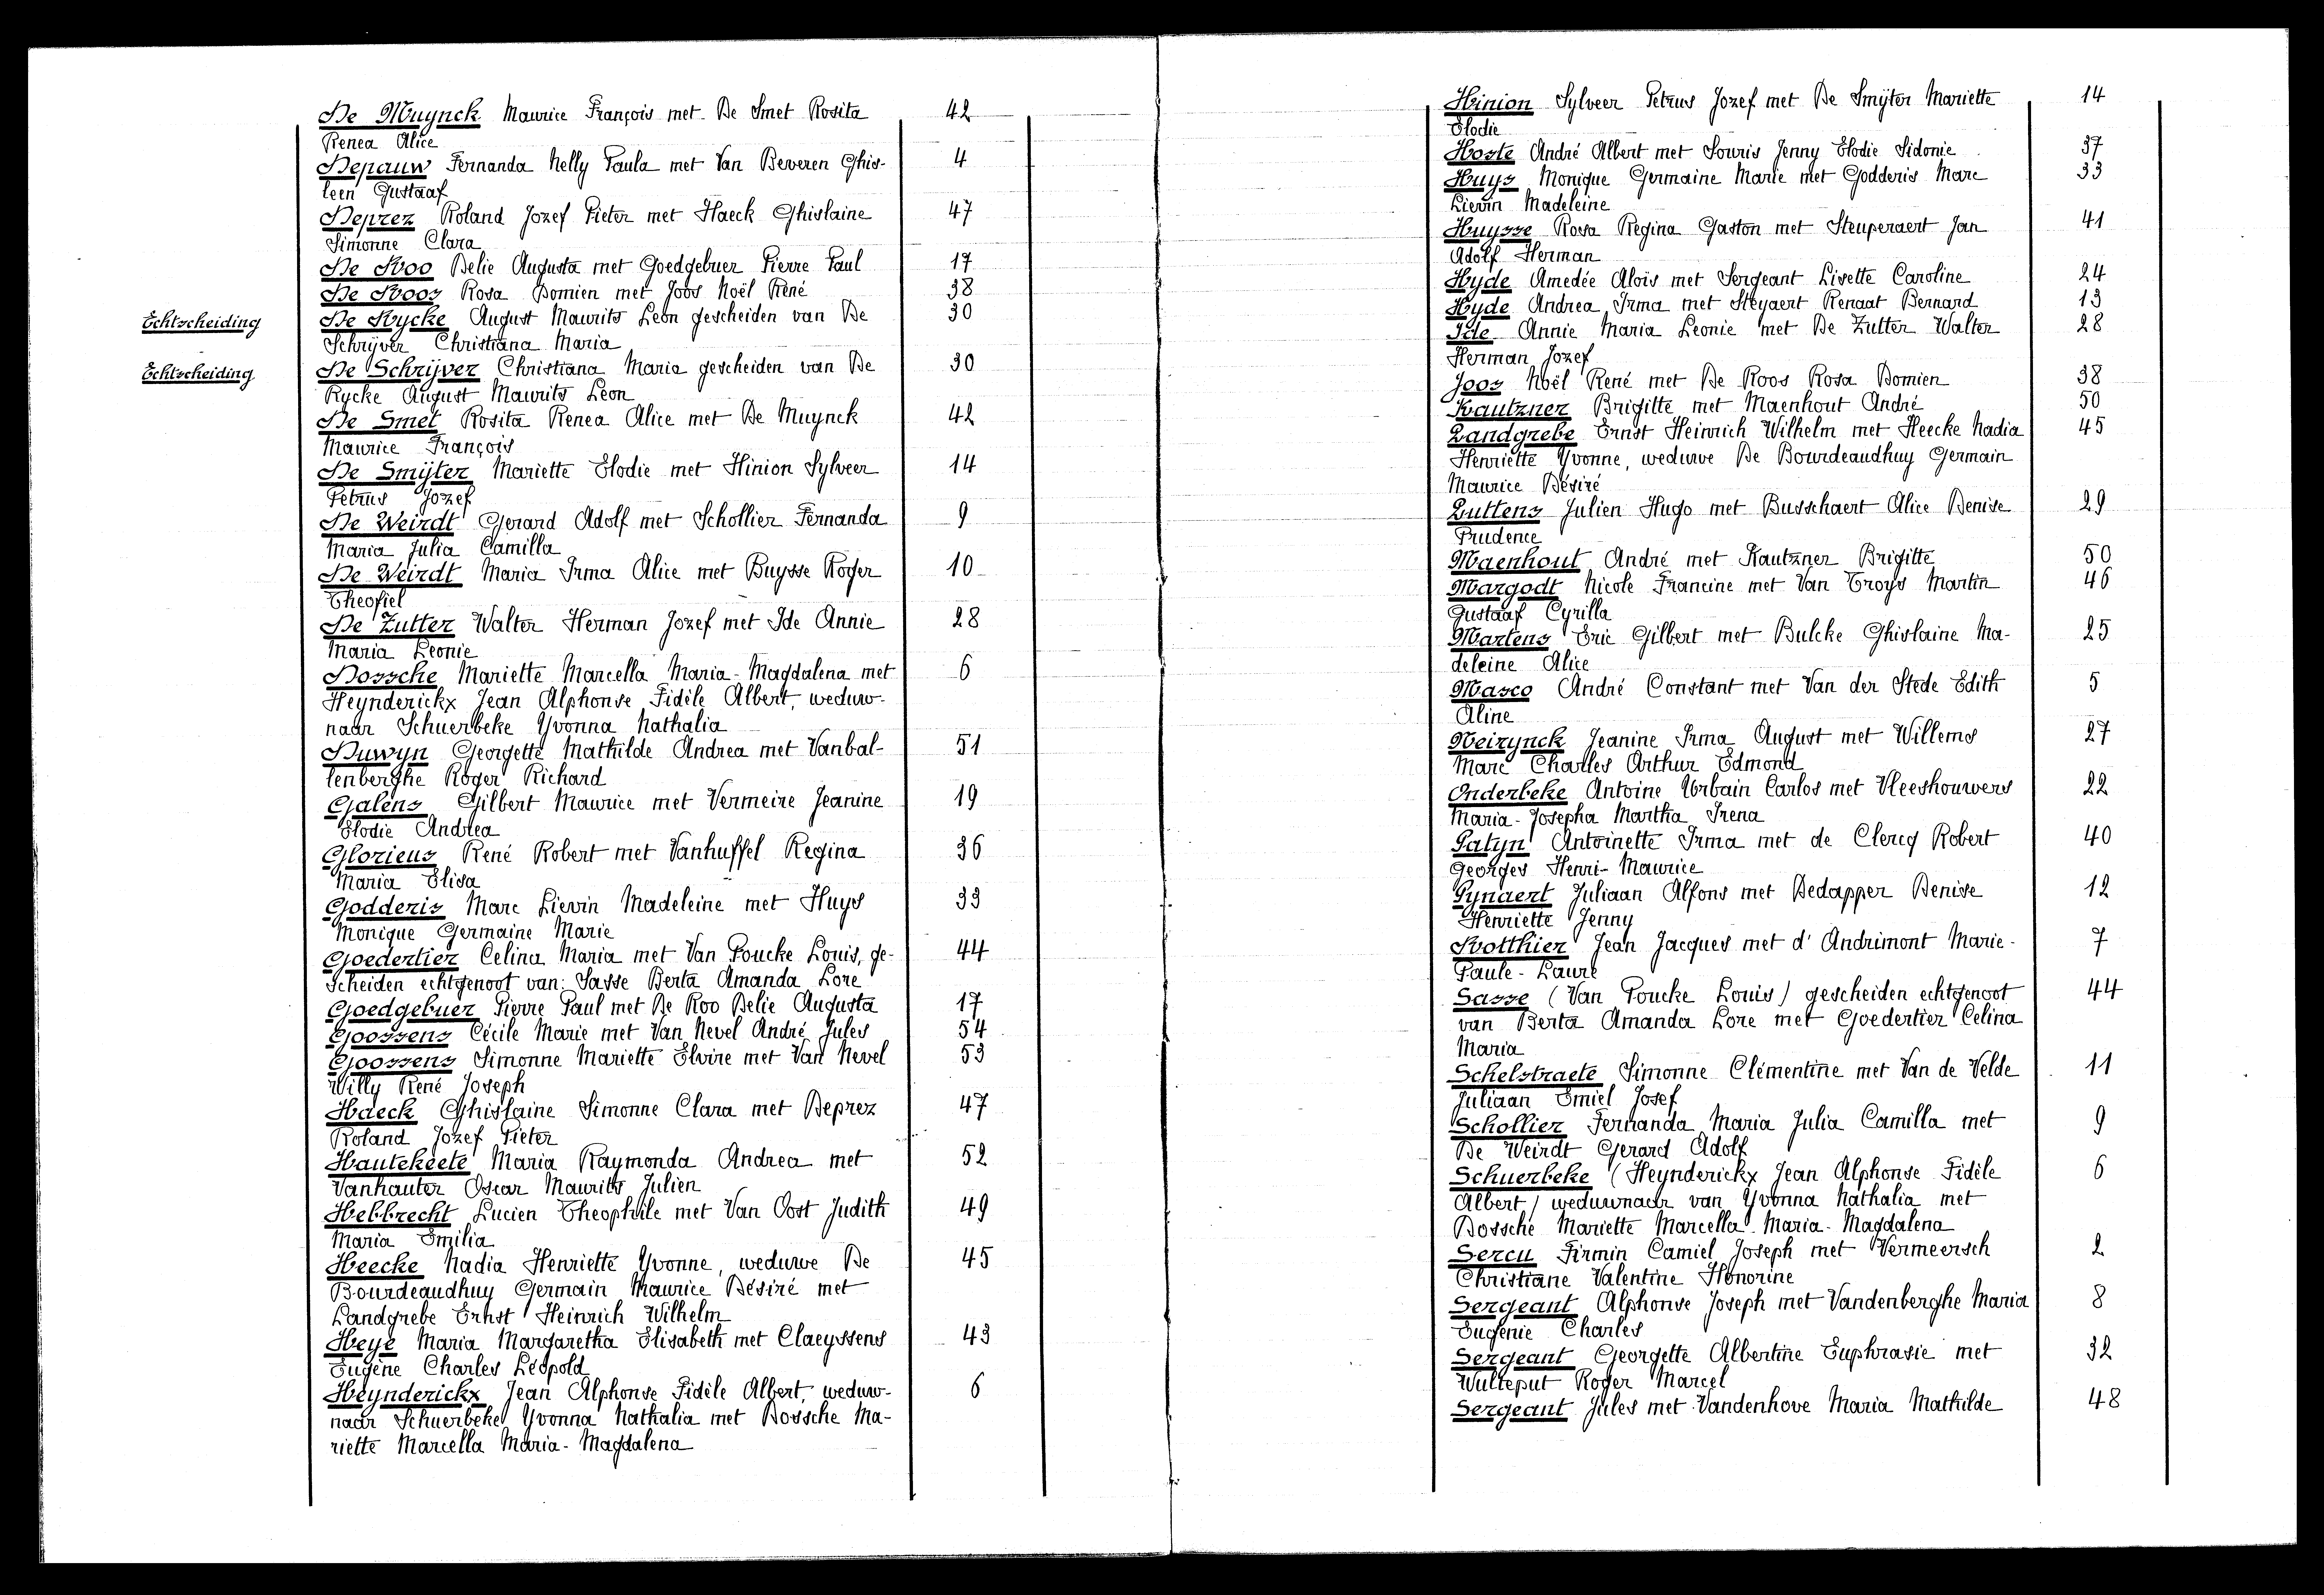 De Muynck Maurice François met De Smet Rosita 42
Renea Alice
Depauw Fernanda Nelly Paula met Van Beveren Ghis- 4
leen Gustaaf
Deprez Roland Jozef Pieter met Haeck Ghislaine 47
Simonne Clara
De Roo Delie Augusta met Goedgebuer Pierre Paul 17
De Roos Rosa Domien met Joos Noël René 38
Echtscheiding De Rycke August Maurits Leon gescheiden van De 30
Schrijver Christiana Maria
Echtscheiding De Schrijver Christiana Maria gescheiden van De 30
Rycke August Maurits Leon
De Smet Rosita Renea Alice met De Muynck 42
Maurice François
De Smijter Mariette Elodie met Hinion Sylveer 14
Petrus Jozef
De Weirdt Gerard Adolf met Schollier Fernanda 9
Maria Julia Camilla
De Weirdt Maria Irma Alice met Buysse Roger 10
Theofiel
De Zutter Walter Herman Jozef met Ide Annie 28
Maria Leonie
Dossche Mariette Marcella Maria-Magdalena met 6
Heynderickx Jean Alphonse Fidèle Albert, weduw-
naar Schuerbeke Yvonna Nathalia
Duwyn Georgette Mathilde Andrea met Vanbal- 51
lenberghe Roger Richard
Galens Gilbert Maurice met Vermeire Jeanine 19
Elodie Andrea
Glorieus René Robert met Vanhuffel Regina 36
Maria Elisa
Godderis Marc Lievin Madeleine met Huys 33
Monique Germaine Marie
Goedertier Celina Maria met Van Poucke Louis, ge- 44
scheiden echtgenoot van: Sasse Berta Amanda Lore
Goedgebuer Pierre Paul met De Roo Delie Augusta 17
Goossens Cécile Marie met Van Nevel André Jules 54
Goossens Simonne Mariette Elvire met Van Nevel 53
Willy René Joseph
Haeck Ghislaine Simonne Clara met Deprez 47
Roland Jozef Pieter
Hautekeete Maria Raymonda Andrea met 52
Vanhauter Oscar Maurits Julien
Hebbrecht Lucien Theophile met Van Oost Judith 49
Maria Emilia
Heecke Nadia Henriette Yvonne, weduwe De 45
Bourdeaudhuy Germain Maurice Désiré met
Landgrebe Ernst Heinrich Wilhelm
Heye Maria Margaretha Elisabeth met Claeyssens 43
Eugène Charles Léopold
Heynderickx Jean Alphonse Fidèle Albert, weduw- 6
naar Schuerbeke Yvonna Nathalia met Dossche Ma-
riette Marcella Maria-Magdalena
Hinion Sylveer Petrus Jozef met De Smijter Mariette 14
Elodie
Hoste André Albert met Souris Jenny Elodie Sidonie 37
Huys Monique Germaine Marie met Godderis Marc 33
Lievin Madeleine
Huysse Rosa Regina Gaston met Steuperaert Jan 41
Adolf Herman
Hyde Amedée Aloïs met Sergeant Lisette Caroline 24
Hyde Andrea Irma met Steyaert Renaat Bernard 13
Ide Annie Maria Leonie met De Zutter Walter 28
Herman Jozef
Joos Noël René met De Roos Rosa Domien 38
Kautzner Brigitte met Maenhout André 50
Landgrebe Ernst Heinrich Wilhelm met Heecke Nadia 45
Henriette Yvonne, weduwe De Bourdeaudhuy Germain
Maurice Désiré
Luttens Julien Hugo met Busschaert Alice Denise 29
Prudence
Maenhout André met Kautzner Brigitte 50
Margodt Nicole Francine met Van Troys Martin 46
Gustaaf Cyrilla
Martens Eric Gilbert met Bulcke Ghislaine Ma- 25
deleine Alice
Masco André Constant met Van der Stede Edith 5
Aline
Neirynck Jeanine Irma August met Willems 27
Marc Charles Arthur Edmond
Onderbeke Antoine Urbain Carlos met Vleeshouwers 22
Maria-Josepha Martha Irena
Patyn Antoinette Irma met de Clercq Robert 40
Georges Henri-Maurice
Pynaert Juliaan Alfons met Dedapper Denise 12
Henriette Jenny
Rotthier Jean Jacques met d'Andrimont Marie- 7
Paule-Laure
Sasse (Van Poucke Louis) gescheiden echtgenoot 44
van Berta Amanda Lore met Goedertier Celina
Maria
Schelstraete Simonne Clémentine met Van de Velde 11
Juliaan Emiel Josef
Schollier Fernanda Maria Julia Camilla met 9
De Weirdt Gerard Adolf
Schuerbeke (Heynderickx Jean Alphonse Fidèle 6
Albert) weduwnaar van Yvonna Nathalia met
Dossche Mariette Marcella Maria-Magdalena
Sercu Firmin Camiel Joseph met Vermeersch 2
Christiane Valentine Honorine
Sergeant Alphonse Joseph met Vandenberghe Maria 8
Eugenie Charles
Sergeant Georgette Albertine Euphrasie met 32
Wulteput Roger Marcel
Sergeant Jules met Vandenhove Maria Mathilde 48